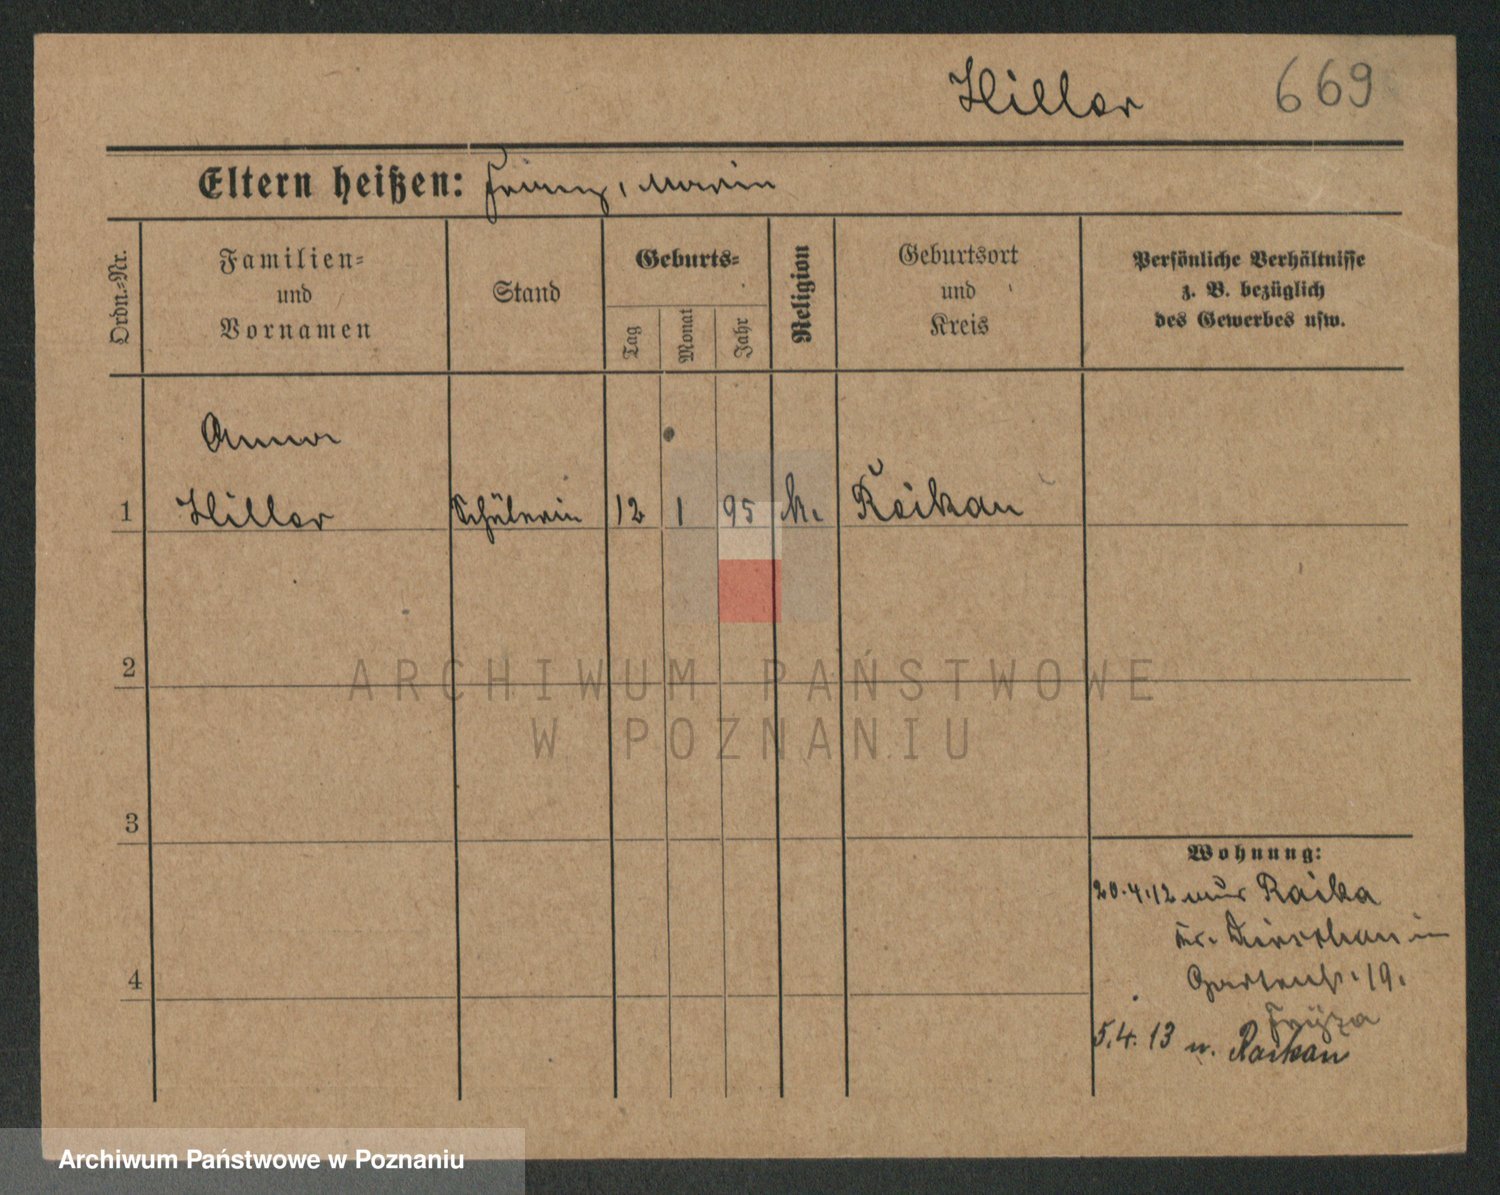 Hiller 669
Eltern heißen: Franz, Marin
Ordn.=Nr.
Familien=
und
Vornamen
Stand
Geburts=
Tag
Monat
Jahr
Religion
Geburtsort
und
Kreis
Persönliche Verhältnisse
z. B. bezüglich
des Gewerbes usw.
Anna
1 Hiller Schülerin 12 1 95 k. Raikau
2
3
4
Wohnung:
20.4.12 aus Raika
Kr. Dirschau in
Gartenst. 19.
5.4.13 n. Raikau
ARCHIWUM PAŃSTWOWE
W POZNANIU
Archiwum Państwowe w Poznaniu